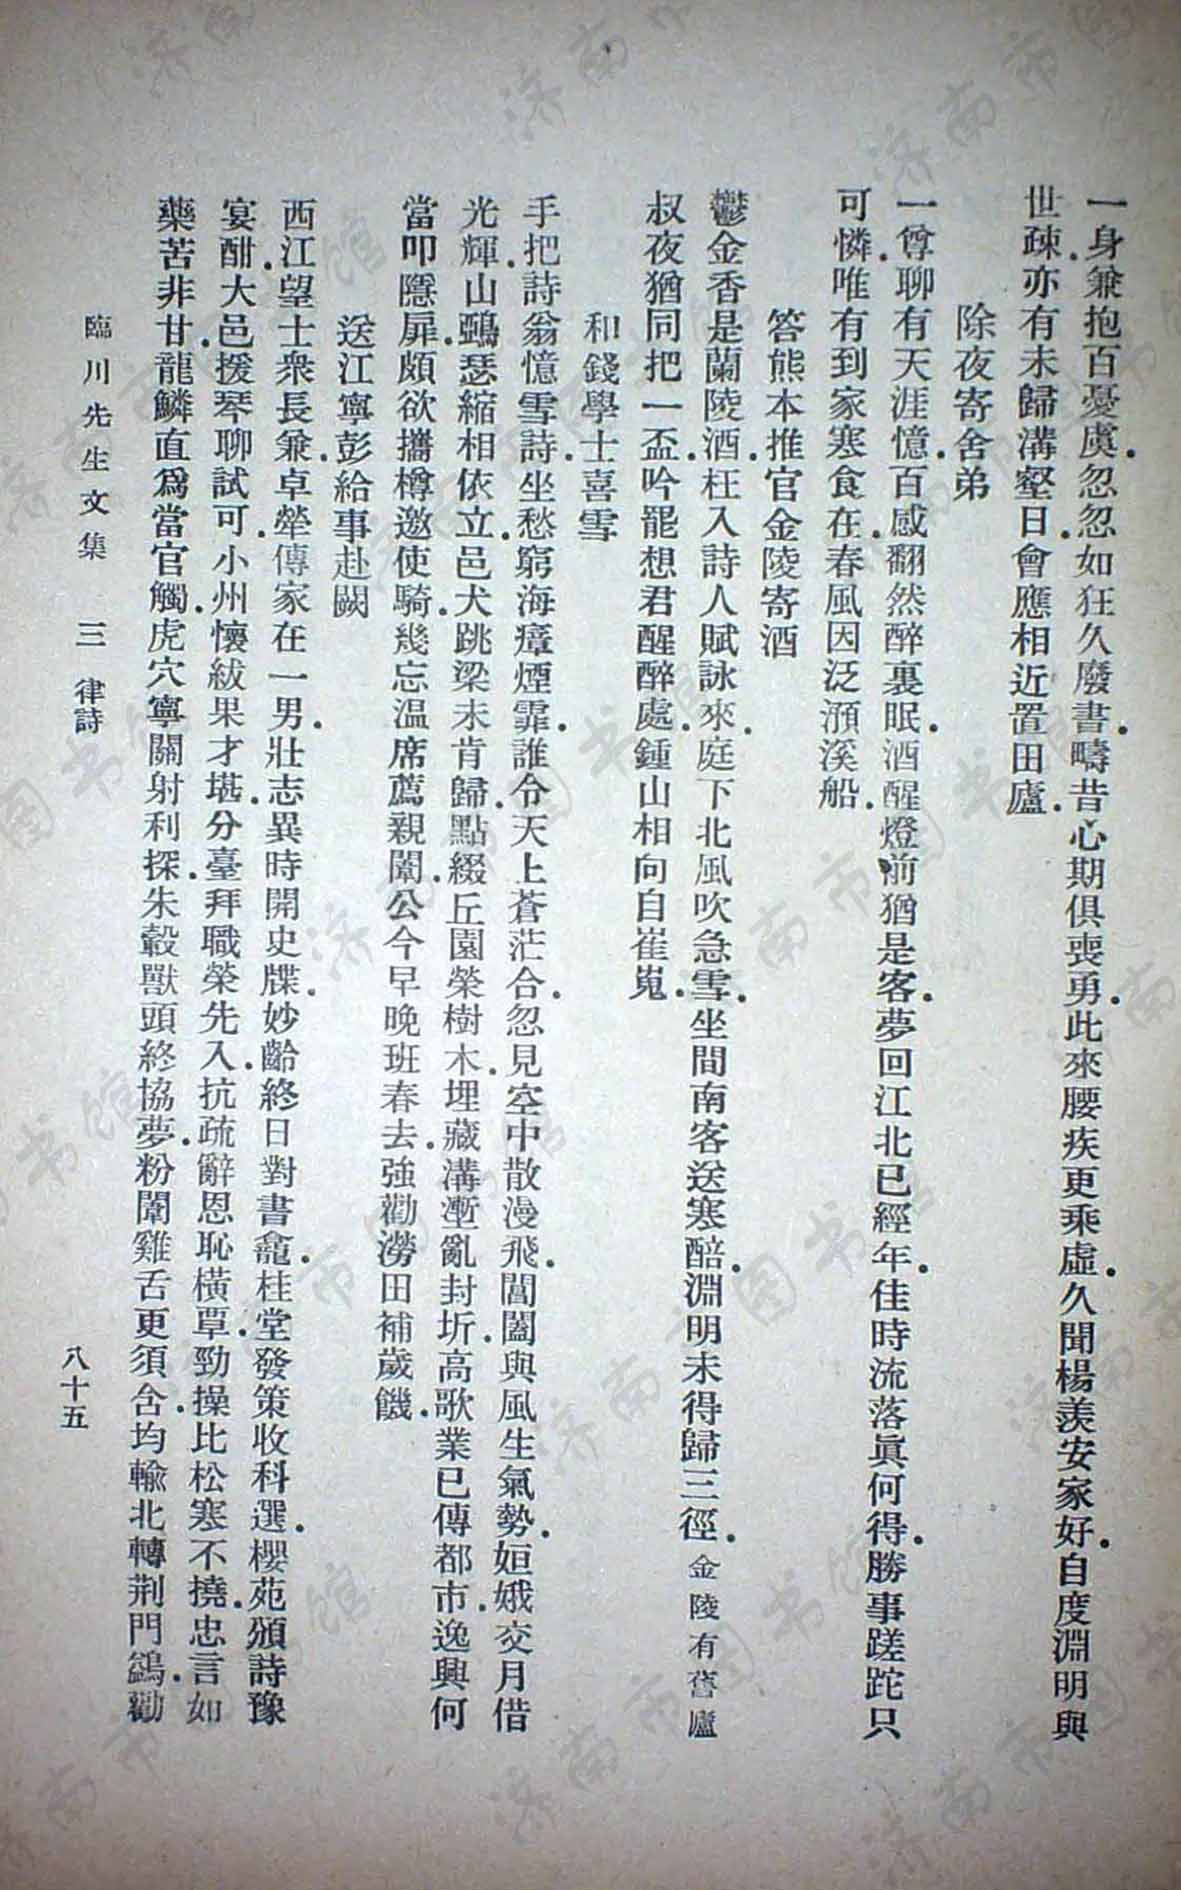 一身兼抱百憂虞忽忽如狂久廢書疇昔心期俱喪勇此來腰疾更乘虛久聞楊羨安家好自度淵明與
世疎亦有未歸溝壑日會應相近置田廬
除夜寄舍弟
一尊聊有天涯憶百感翻然醉裏眠酒醒燈前猶是客夢回江北已經年佳時流落眞何得勝事蹉跎只
可憐唯有到家寒食在春風因泛溪船
答熊本推官金陵寄酒
鬱金香是蘭陵酒枉入詩人賦詠來庭下北風吹急雪坐間南客送寒醅淵明未得歸三徑金陵有舊廬
叔夜猶同把一盃吟罷想君醒醉處鍾山相向自崔嵬
和錢學士喜雪
手把詩翁憶雪詩坐愁窮海瘴煙霏誰令天上蒼茫合忽見空中散漫飛閶闔與風生氣勢姮娥交月借
光輝山鵶瑟縮相依立邑犬跳梁未肯歸點綴丘園榮樹木埋藏溝壍亂封圻高歌業已傳都市逸興何
當叩隱扉頗欲攜樽邀使騎幾忘溫席薦親闈公今早晚班春去強勸澇田補歲饑
送江寧彭給事赴闕
西江望士衆長兼卓犖傳家在一男壯志異時開史牒妙齡終日對書龕桂堂發策收科選櫻苑頒詩豫
宴酣大邑援琴聊試可小州懷紱果才堪分臺拜職榮先入抗疏辭恩恥橫覃勁操比松寒不撓忠言如
藥苦非甘龍鱗直爲當官觸虎穴寧關射利探朱轂獸頭終協夢粉闈雞舌更須含均輸北轉荆門鷁勸
臨川先生文集 三 律詩
八十五